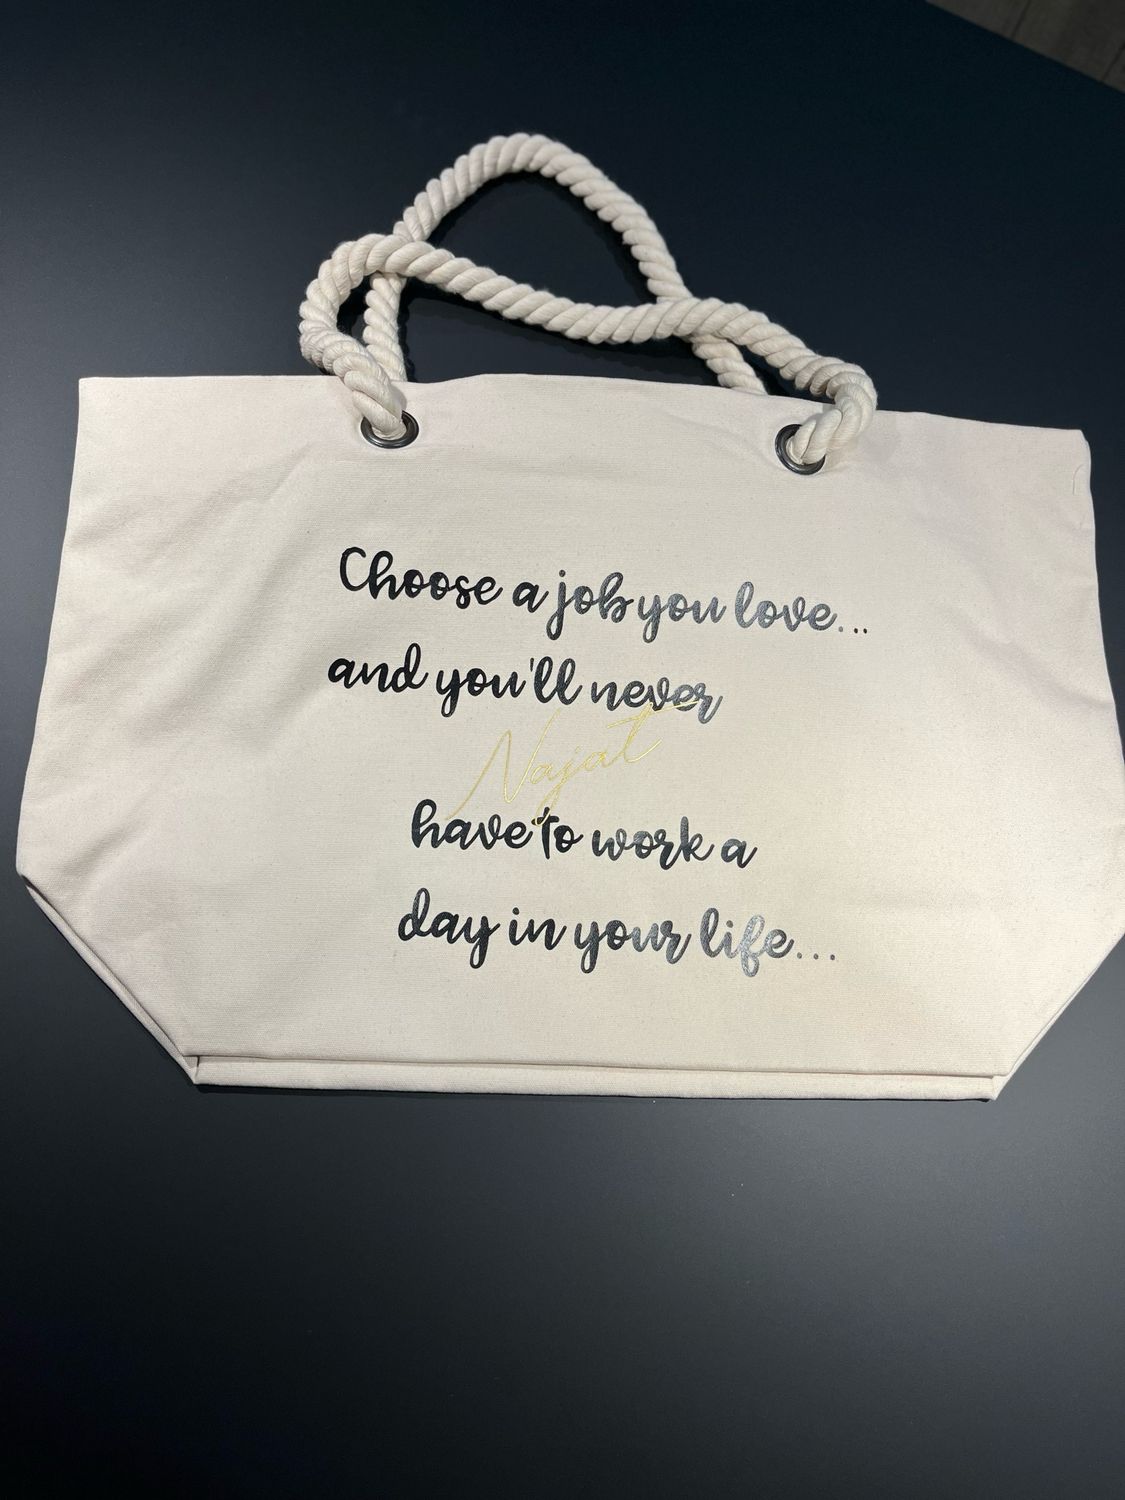 Choose a job you love...
and you'll never
Najat
have to work a
day in your life...